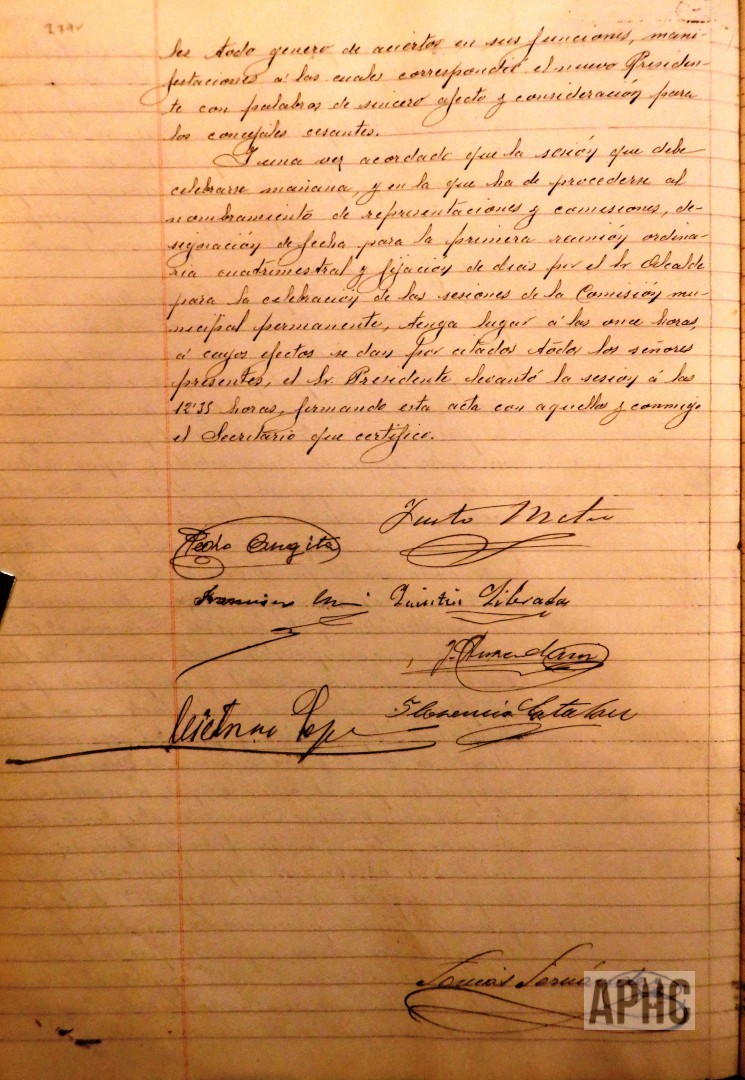 les todo genero de aciertos en sus funciones, mani-
festaciones á las cuales correspondió el nuevo Presiden-
te con palabras de sincero afecto y consideración para
los concejales cesantes.
Y una vez acordado que la sesión que debe
celebrarse mañana, y en la que ha de procederse al
nombramiento de representaciones y comisiones, de-
signación de fecha para la primera reunión ordina-
ria cuatrimestral y fijación de dias por el Sr. Alcalde
para la celebración de las sesiones de la Comisión mu-
nicipal permanente, tenga lugar á las once horas,
á cuyos efectos se dan por citados todos los señores
presentes, el Sr. Presidente levantó la sesión á las
12'35 horas, firmando esta acta con aquellos y conmigo
el Secretario que certifico.
Justo
Pedro
Francisco
Librada
Florencio
Tomás
APHC